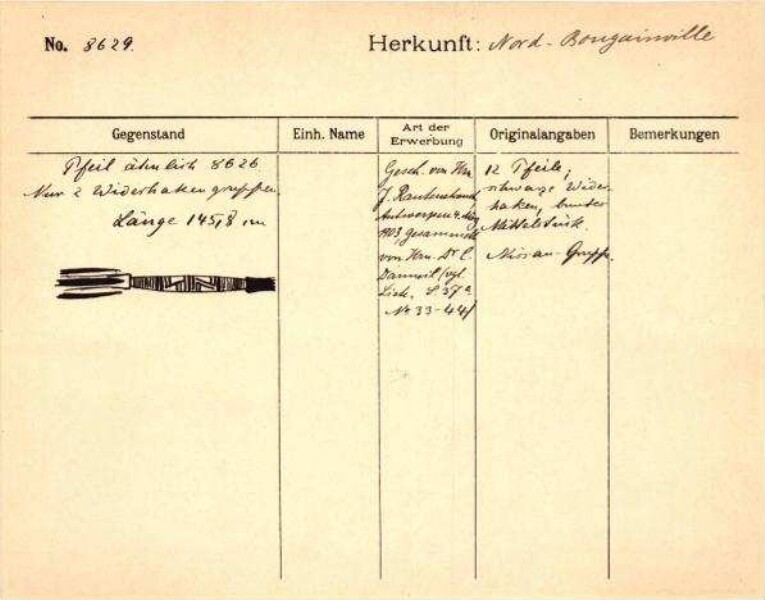 No. 8629.
Herkunft: Nord-Bougainville
Gegenstand
Einh. Name
Art der Erwerbung
Originalangaben
Bemerkungen
Pfeil ähnlich 8626.
Nur 2 Widerhakengruppen.
Länge 145,8 cm
Gesch. von Hrn
J. Rautenstrauch,
Antwerpen 4. 
1903, gesammelt
von Hrn. Dr C.
(vgl.
Liste, S 37a
Nr 33-44)
12 Pfeile,
schwarze Wider-
haken, bunter
Mittelstück.
Nissan-Gruppe.